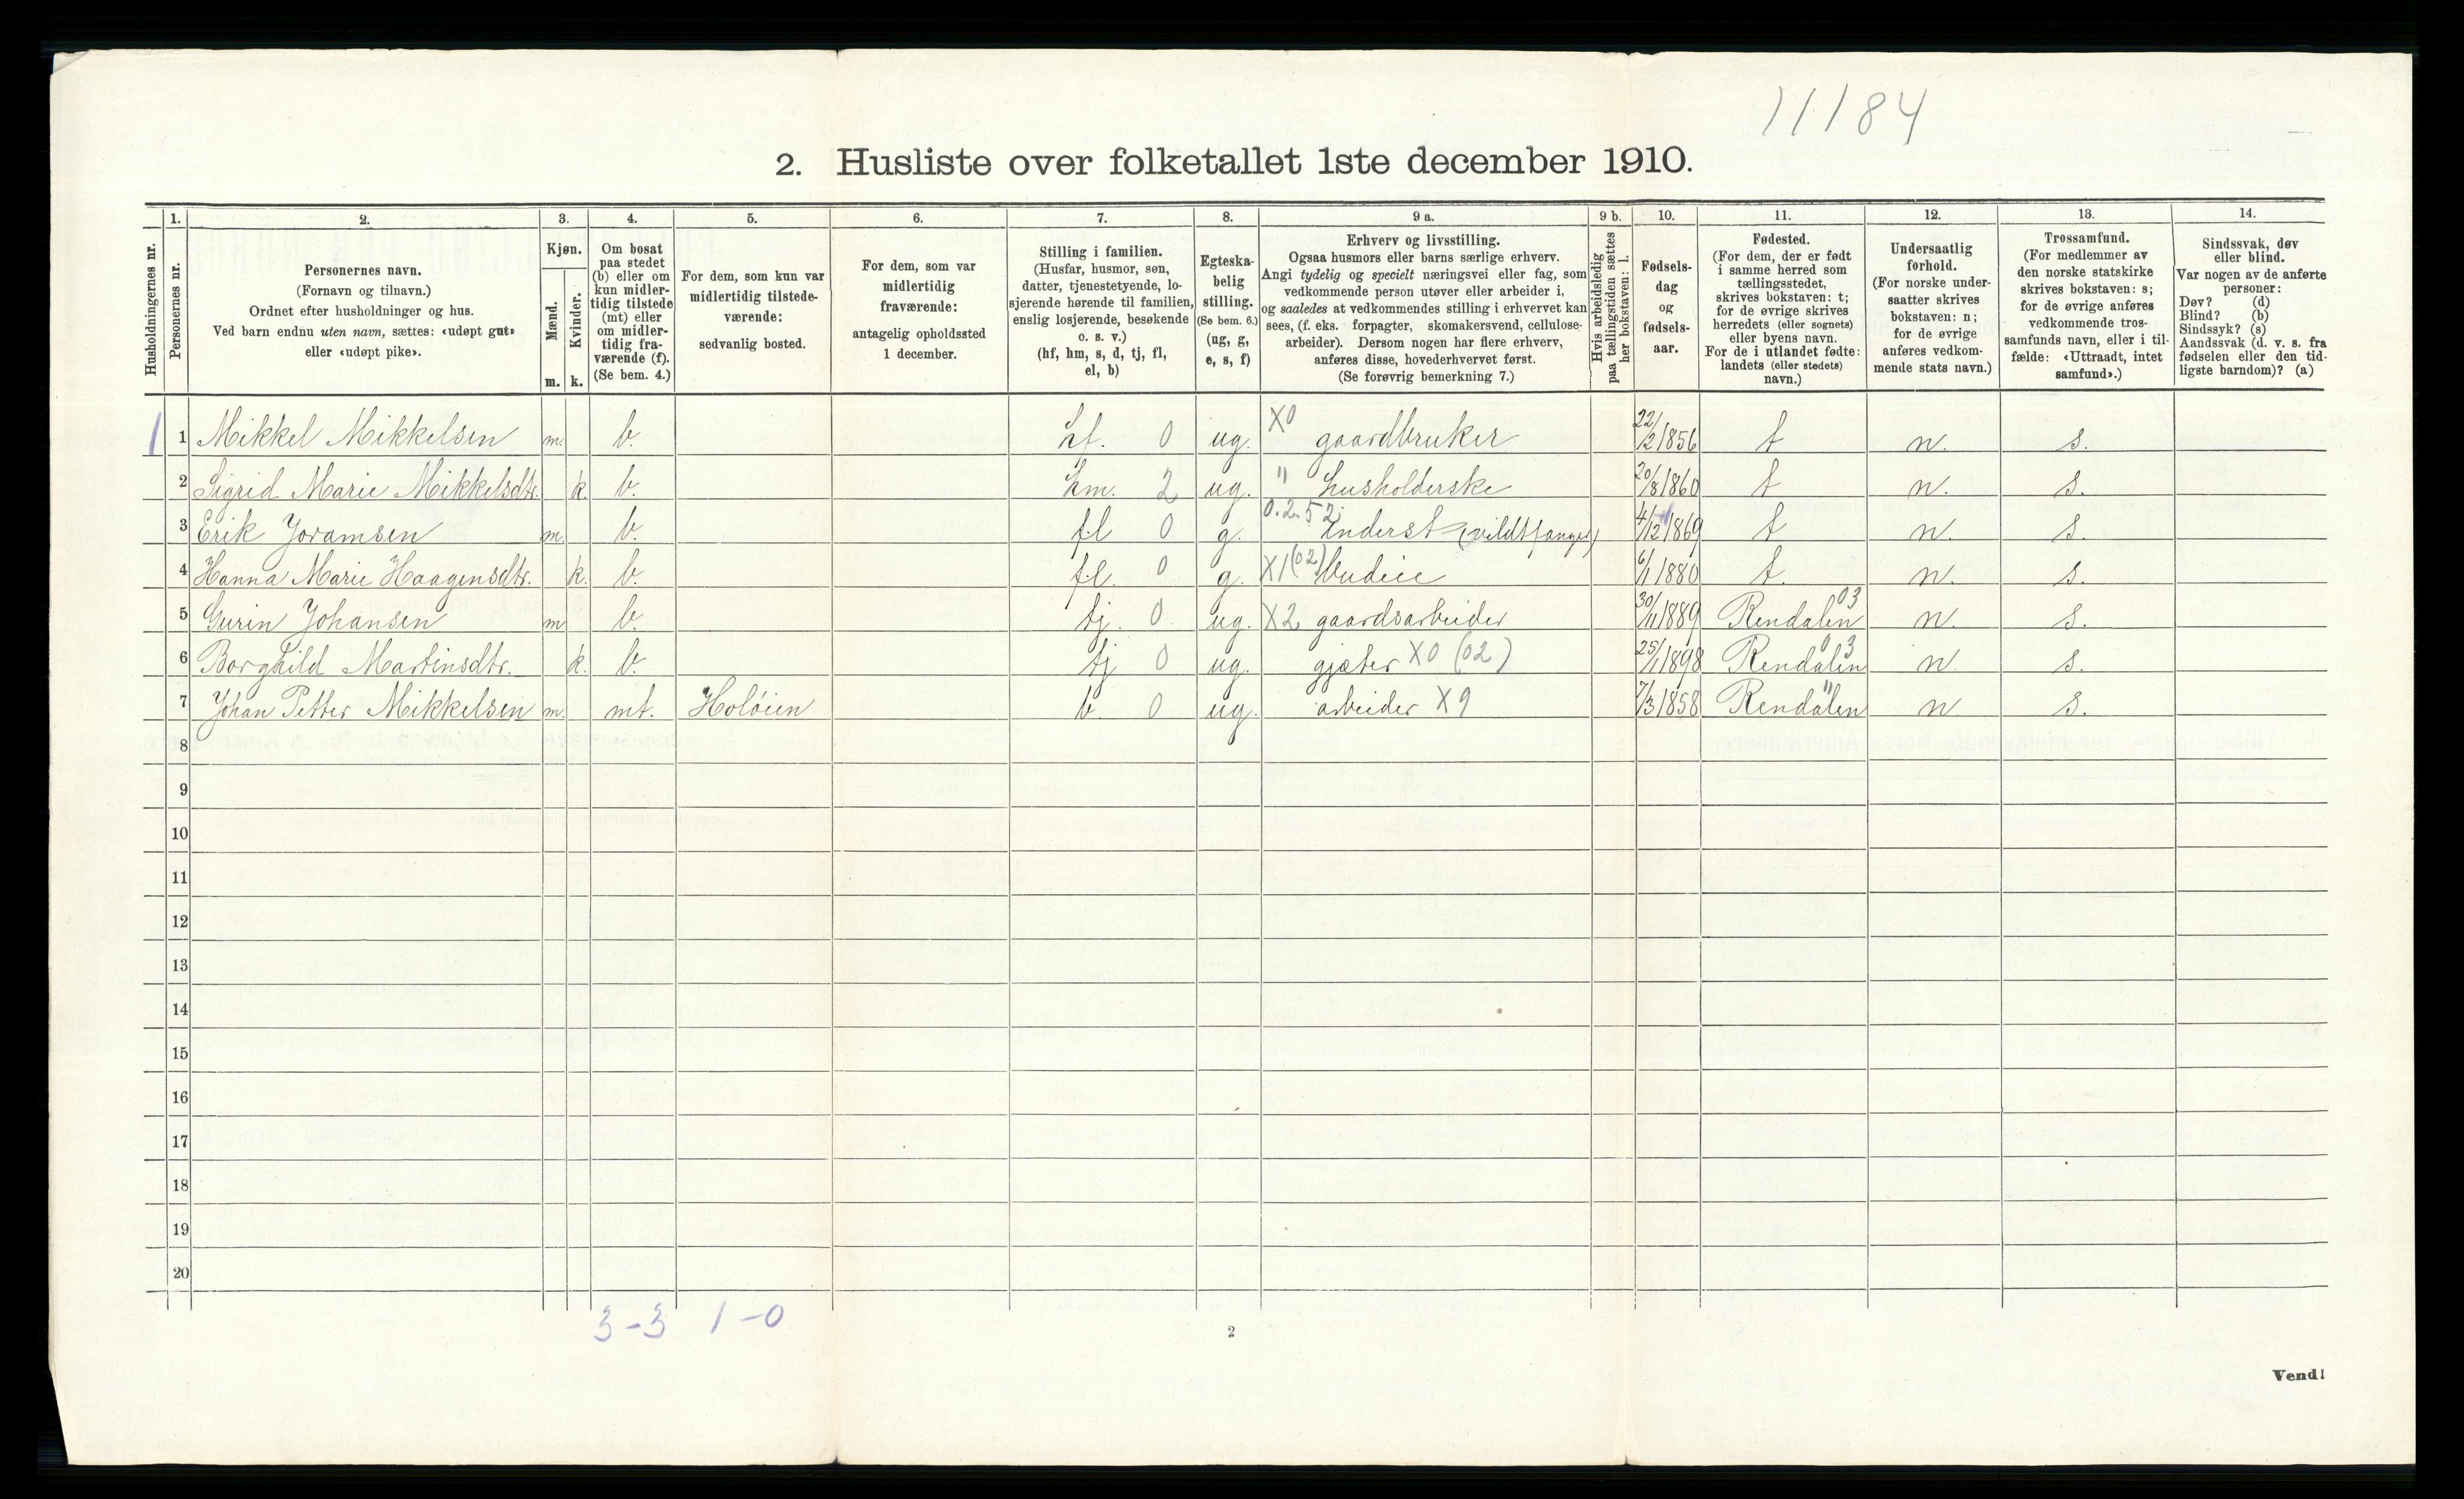 11184
2. Husliste over folketallet 1ste december 1910.
1. 2. 3. 4. 5. 6. 7. 8. 9 a. 9 b. 10. 11. 12. 13. 14.
Husholdningernes nr.
Personernes nr.
Personernes navn.
(Fornavn og tilnavn.)
Ordnet efter husholdninger og hus.
Ved barn endnu uten navn, sættes: «udøpt gut»
eller «udøpt pike».
Kjøn.
Mænd.
Kvinder.
m. k.
Om bosat
paa stedet
(b) eller om
kun midler-
tidig tilstede
(mt) eller
om midler-
tidig fra-
værende (f).
(Se bem. 4.)
For dem, som kun var
midlertidig tilstede-
værende:
sedvanlig bosted.
For dem, som var
midlertidig
fraværende:
antagelig opholdssted
1 december.
Stilling i familien.
(Husfar, husmor, søn,
datter, tjenestetyende, lo-
sjerende hørende til familien,
enslig losjerende, besøkende
o. s. v.)
(hf, hm, s, d, tj, fl,
el, b)
Egteska-
belig
stilling.
(Se bem. 6.)
(ug, g,
e, s, f)
Erhverv og livsstilling.
Ogsaa husmors eller barns særlige erhverv.
Angi tydelig og specielt næringsvei eller fag, som
vedkommende person utøver eller arbeider i,
og saaledes at vedkommendes stilling i erhvervet kan
sees, (f. eks. forpagter, skomakersvend, cellulose-
arbeider). Dersom nogen har flere erhverv,
anføres disse, hovederhvervet først.
(Se forøvrig bemerkning 7.)
Hvis arbeidsledig
paa tællingstiden sættes
her bokstaven: l.
Fødsels-
dag
og
fødsels-
aar.
Fødested.
(For dem, der er født
i samme herred som
tællingsstedet,
skrives bokstaven: t;
for de øvrige skrives
herredets (eller sognets)
eller byens navn.
For de i utlandet fødte:
landets (eller stedets)
navn.)
Undersaatlig
forhold.
(For norske under-
saatter skrives
bokstaven: n;
for de øvrige
anføres vedkom-
mende stats navn.)
Trossamfund.
(For medlemmer av
den norske statskirke
skrives bokstaven: s;
for de øvrige anføres
vedkommende tros-
samfunds navn, eller i til-
fælde: «Uttraadt, intet
samfund».)
Sindssvak, døv
eller blind.
Var nogen av de anførte
personer:
Døv? (d)
Blind? (b)
Sindssyk? (s)
Aandssvak (d. v. s. fra
fødselen eller den tid-
ligste barndom)? (a)
1 1 Mikkel Mikkelsen m. b. hf. 0 ug. X0 gaardbruker 22/2 1856 t n. s.
2 Sigrid Marie Mikkelsdtr. k. b. hm. 2 ug. " husholderske 20/8 1860 t n. s.
3 Erik Joramsen m. b. fl 0 g. 0.2.52 Inderst (vildtfanger) 4/12 1869 t n. s.
4 Hanna Marie Haagensdtr. k. b. fl 0 g. X1(02) budeie 6/1 1880 t. n. s.
5 Gurin Johansen m b. tj. 0. ug. X2 gaardsarbeider 30/11 1889 Rendalen 03 n. s.
6 Borghild Martinsdtr. k. b. tj 0 ug. gjæter X0 (02) 25/1 1898 Rendalen 03 n. s.
7 Johan Petter Mikkelsen m. mt. Holøien b. 0 ug. arbeider X9 7/3 1858 Rendalen " n s.
8
9
10
11
12
13
14
15
16
17
18
19
20
3-3 1-0
2
Vend!